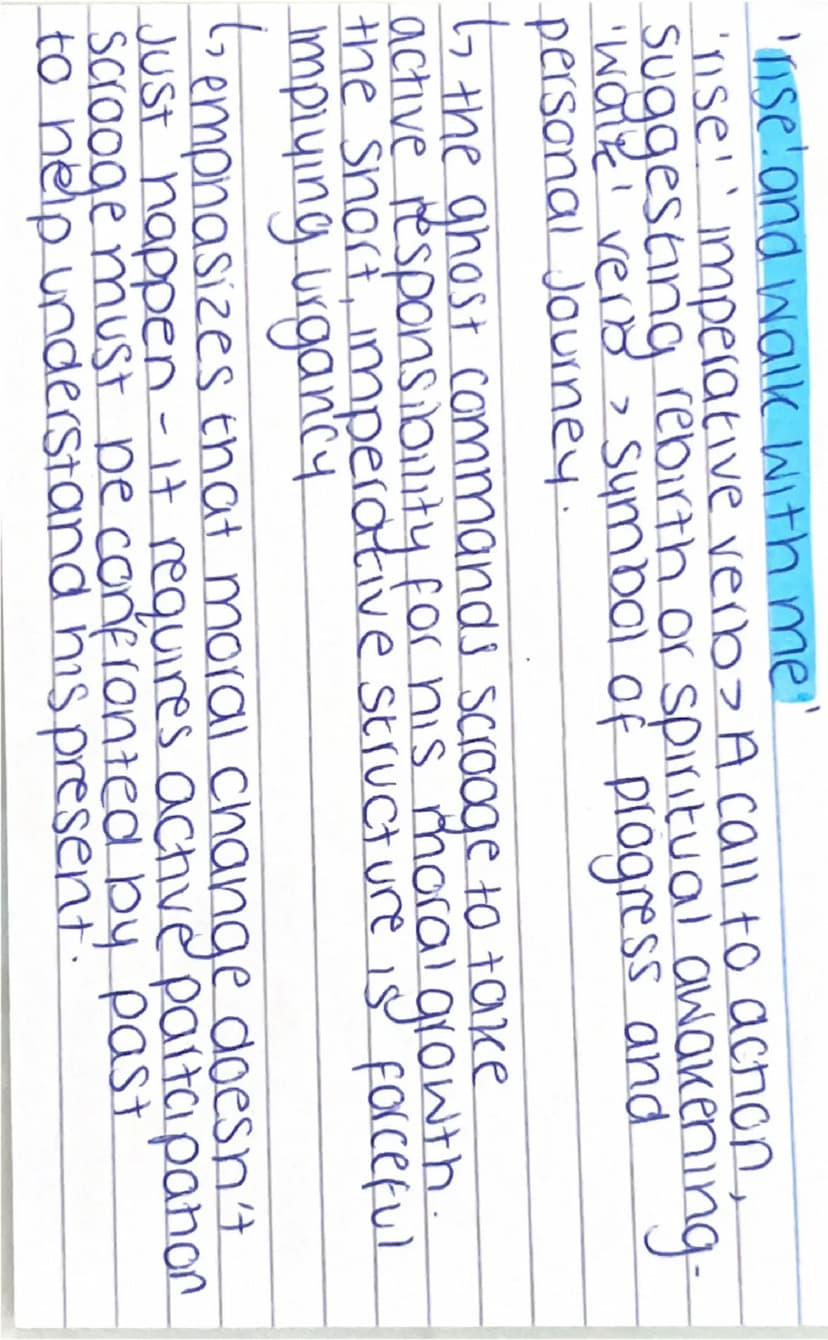 'rise! and walk with me'
'rise!' imperative verb > A call to action,
suggesting rebirth or spiritual awakening.
'walk' verb > symbol of progress and
personal journey.
↳ the ghost commands scrooge to take
active responsibility for his moral growth.
the short, imperative structure is forceful
implying urgancy
↳ emphasizes that moral change doesn't
just happen - it requires active participation
scrooge must be confronted by past
to help understand his present.